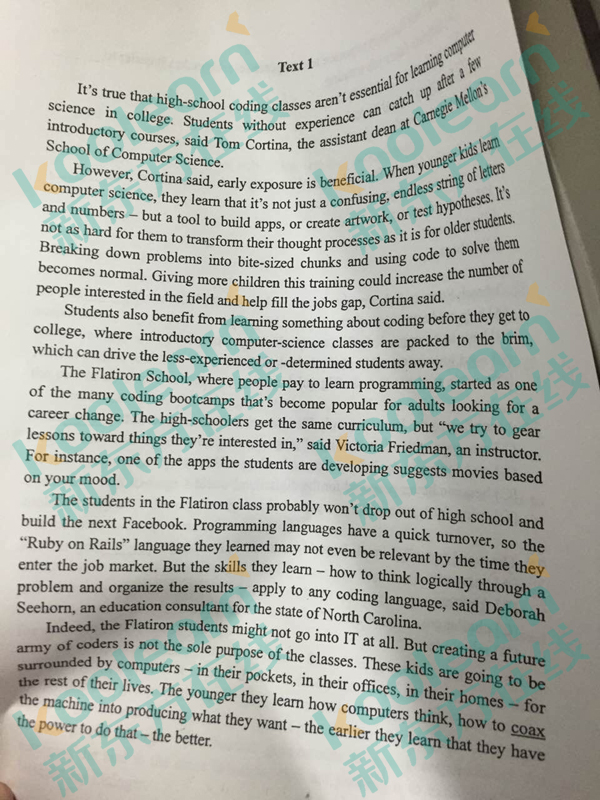 Text 1
It's true that high-school coding classes aren't essential for learning computer
science in college. Students without experience can catch up after a few
introductory courses, said Tom Cortina, the assistant dean at Carnegie Mellon's
School of Computer Science.
However, Cortina said, early exposure is beneficial. When younger kids learn
computer science, they learn that it's not just a confusing, endless string of letters
and numbers – but a tool to build apps, or create artwork, or test hypotheses. It's
not as hard for them to transform their thought processes as it is for older students.
Breaking down problems into bite-sized chunks and using code to solve them
becomes normal. Giving more children this training could increase the number of
people interested in the field and help fill the jobs gap, Cortina said.
Students also benefit from learning something about coding before they get to
college, where introductory computer-science classes are packed to the brim,
which can drive the less-experienced or -determined students away.
The Flatiron School, where people pay to learn programming, started as one
of the many coding bootcamps that's become popular for adults looking for a
career change. The high-schoolers get the same curriculum, but “we try to gear
lessons toward things they're interested in,” said Victoria Friedman, an instructor.
For instance, one of the apps the students are developing suggests movies based
on your mood.
The students in the Flatiron class probably won't drop out of high school and
build the next Facebook. Programming languages have a quick turnover, so the
“Ruby on Rails” language they learned may not even be relevant by the time they
enter the job market. But the skills they learn – how to think logically through a
problem and organize the results – apply to any coding language, said Deborah
Seehorn, an education consultant for the state of North Carolina.
Indeed, the Flatiron students might not go into IT at all. But creating a future
army of coders is not the sole purpose of the classes. These kids are going to be
surrounded by computers – in their pockets, in their offices, in their homes – for
the rest of their lives. The younger they learn how computers think, how to coax
the machine into producing what they want – the earlier they learn that they have
the power to do that – the better.
koolearn
新东方在线